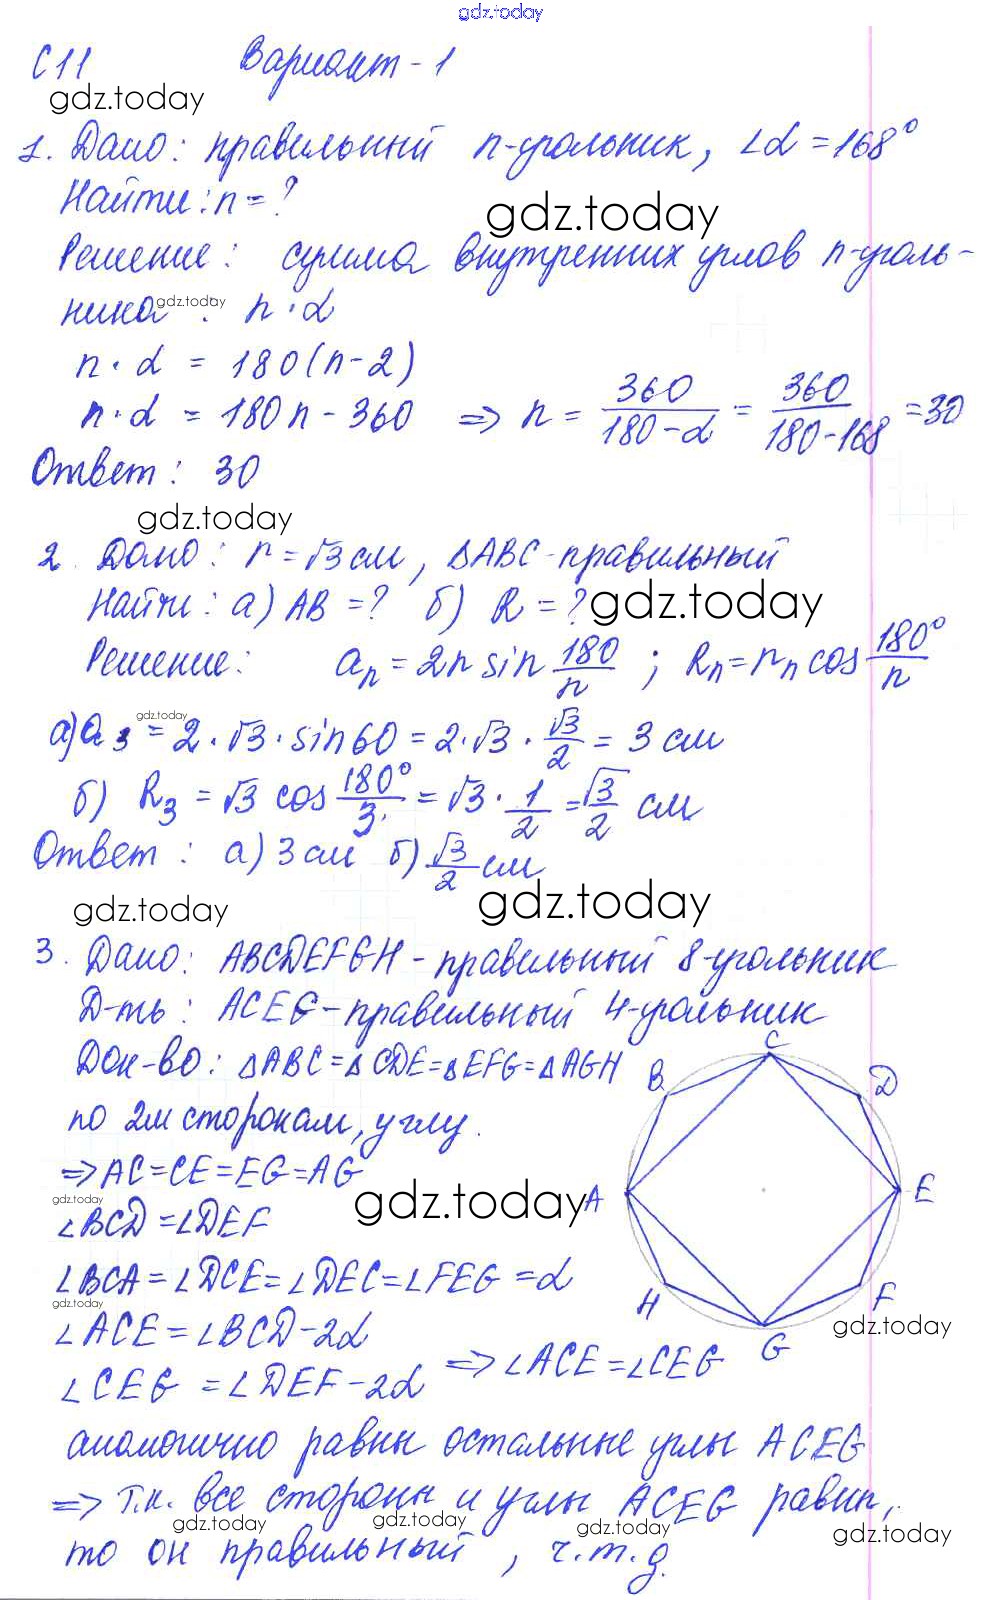 gdz.today
С11 Вариант-1
gdz.today
1. Дано: правильный n-угольник, ∠α = 168°
Найти: n = ?
gdz.today
Решение: сумма внутренних углов n-уголь-
ника : n · α
gdz.today
n · α = 180(n-2)
n · α = 180n - 360 => n = 360/(180-α) = 360/(180-168) = 30
Ответ: 30
gdz.today
2. Дано: r = √3 см, ΔABC-правильный
Найти: а) AB = ? б) R = ?
gdz.today
Решение: aₙ = 2r sin 180/n ; Rₙ = rₙ cos 180°/n
gdz.today
а) a₃ = 2 · √3 · sin60 = 2 · √3 · √3/2 = 3 см
б) R₃ = √3 cos 180°/3 = √3 · 1/2 = √3/2 см
Ответ: а) 3 см б) √3/2 см
gdz.today
gdz.today
3. Дано: ABCDEFGH - правильный 8-угольник
Д-ть: ACEG-правильный 4-угольник
Док-во: ΔABC = ΔCDE = ΔEFG = ΔAGH
по 2м сторонам, углу.
=> AC = CE = EG = AG
gdz.today
gdz.today
∠BCD = ∠DEF
∠BCA = ∠DCE = ∠DEC = ∠FEG = α
gdz.today
∠ACE = ∠BCD - 2α
∠CEG = ∠DEF - 2α => ∠ACE = ∠CEG
C
B
D
A
E
H
F
G
gdz.today
аналогично равны остальные углы ACEG
=> т.к. все стороны и углы ACEG равны,
gdz.today
gdz.today
gdz.today
gdz.today
то он правильный, ч.т.д.